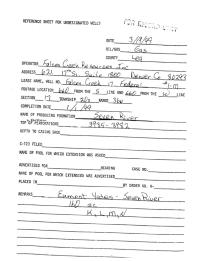 REFERENCE SHEET FOR UNDESIGNATED WELLS
DATE 3/9/99
OIL/GAS Gas
COUNTY Lea
OPERATOR Falcon Creek Resources Inc
ADDRESS 621 17th St, Suite 1800 Denver Co 80293
LEASE NAME, WELL NO. Falcon Creek 17 Federal #1-M
FOOTAGE LOCATION 660 FROM THE S LINE AND 660 FROM THE W LINE
SECTION 17 TOWNSHIP RANGE
COMPLETION DATE
NAME OF PRODUCING FORMATION Seven River
TOP OF PERFORATIONS 3935-3982
DEPTH TO CASING SHOE
C-123 FILED
NAME OF POOL FOR WHICH EXTENSION WAS ASKED
ADVERTISED FOR HEARING CASE NO.
NAME OF POOL FOR WHICH EXTENSION WAS ADVERTISED
PLACED IN BY ORDER NO. R-
REMARKS Eumont Yates - Seven River
160 ac
K, L, M, N